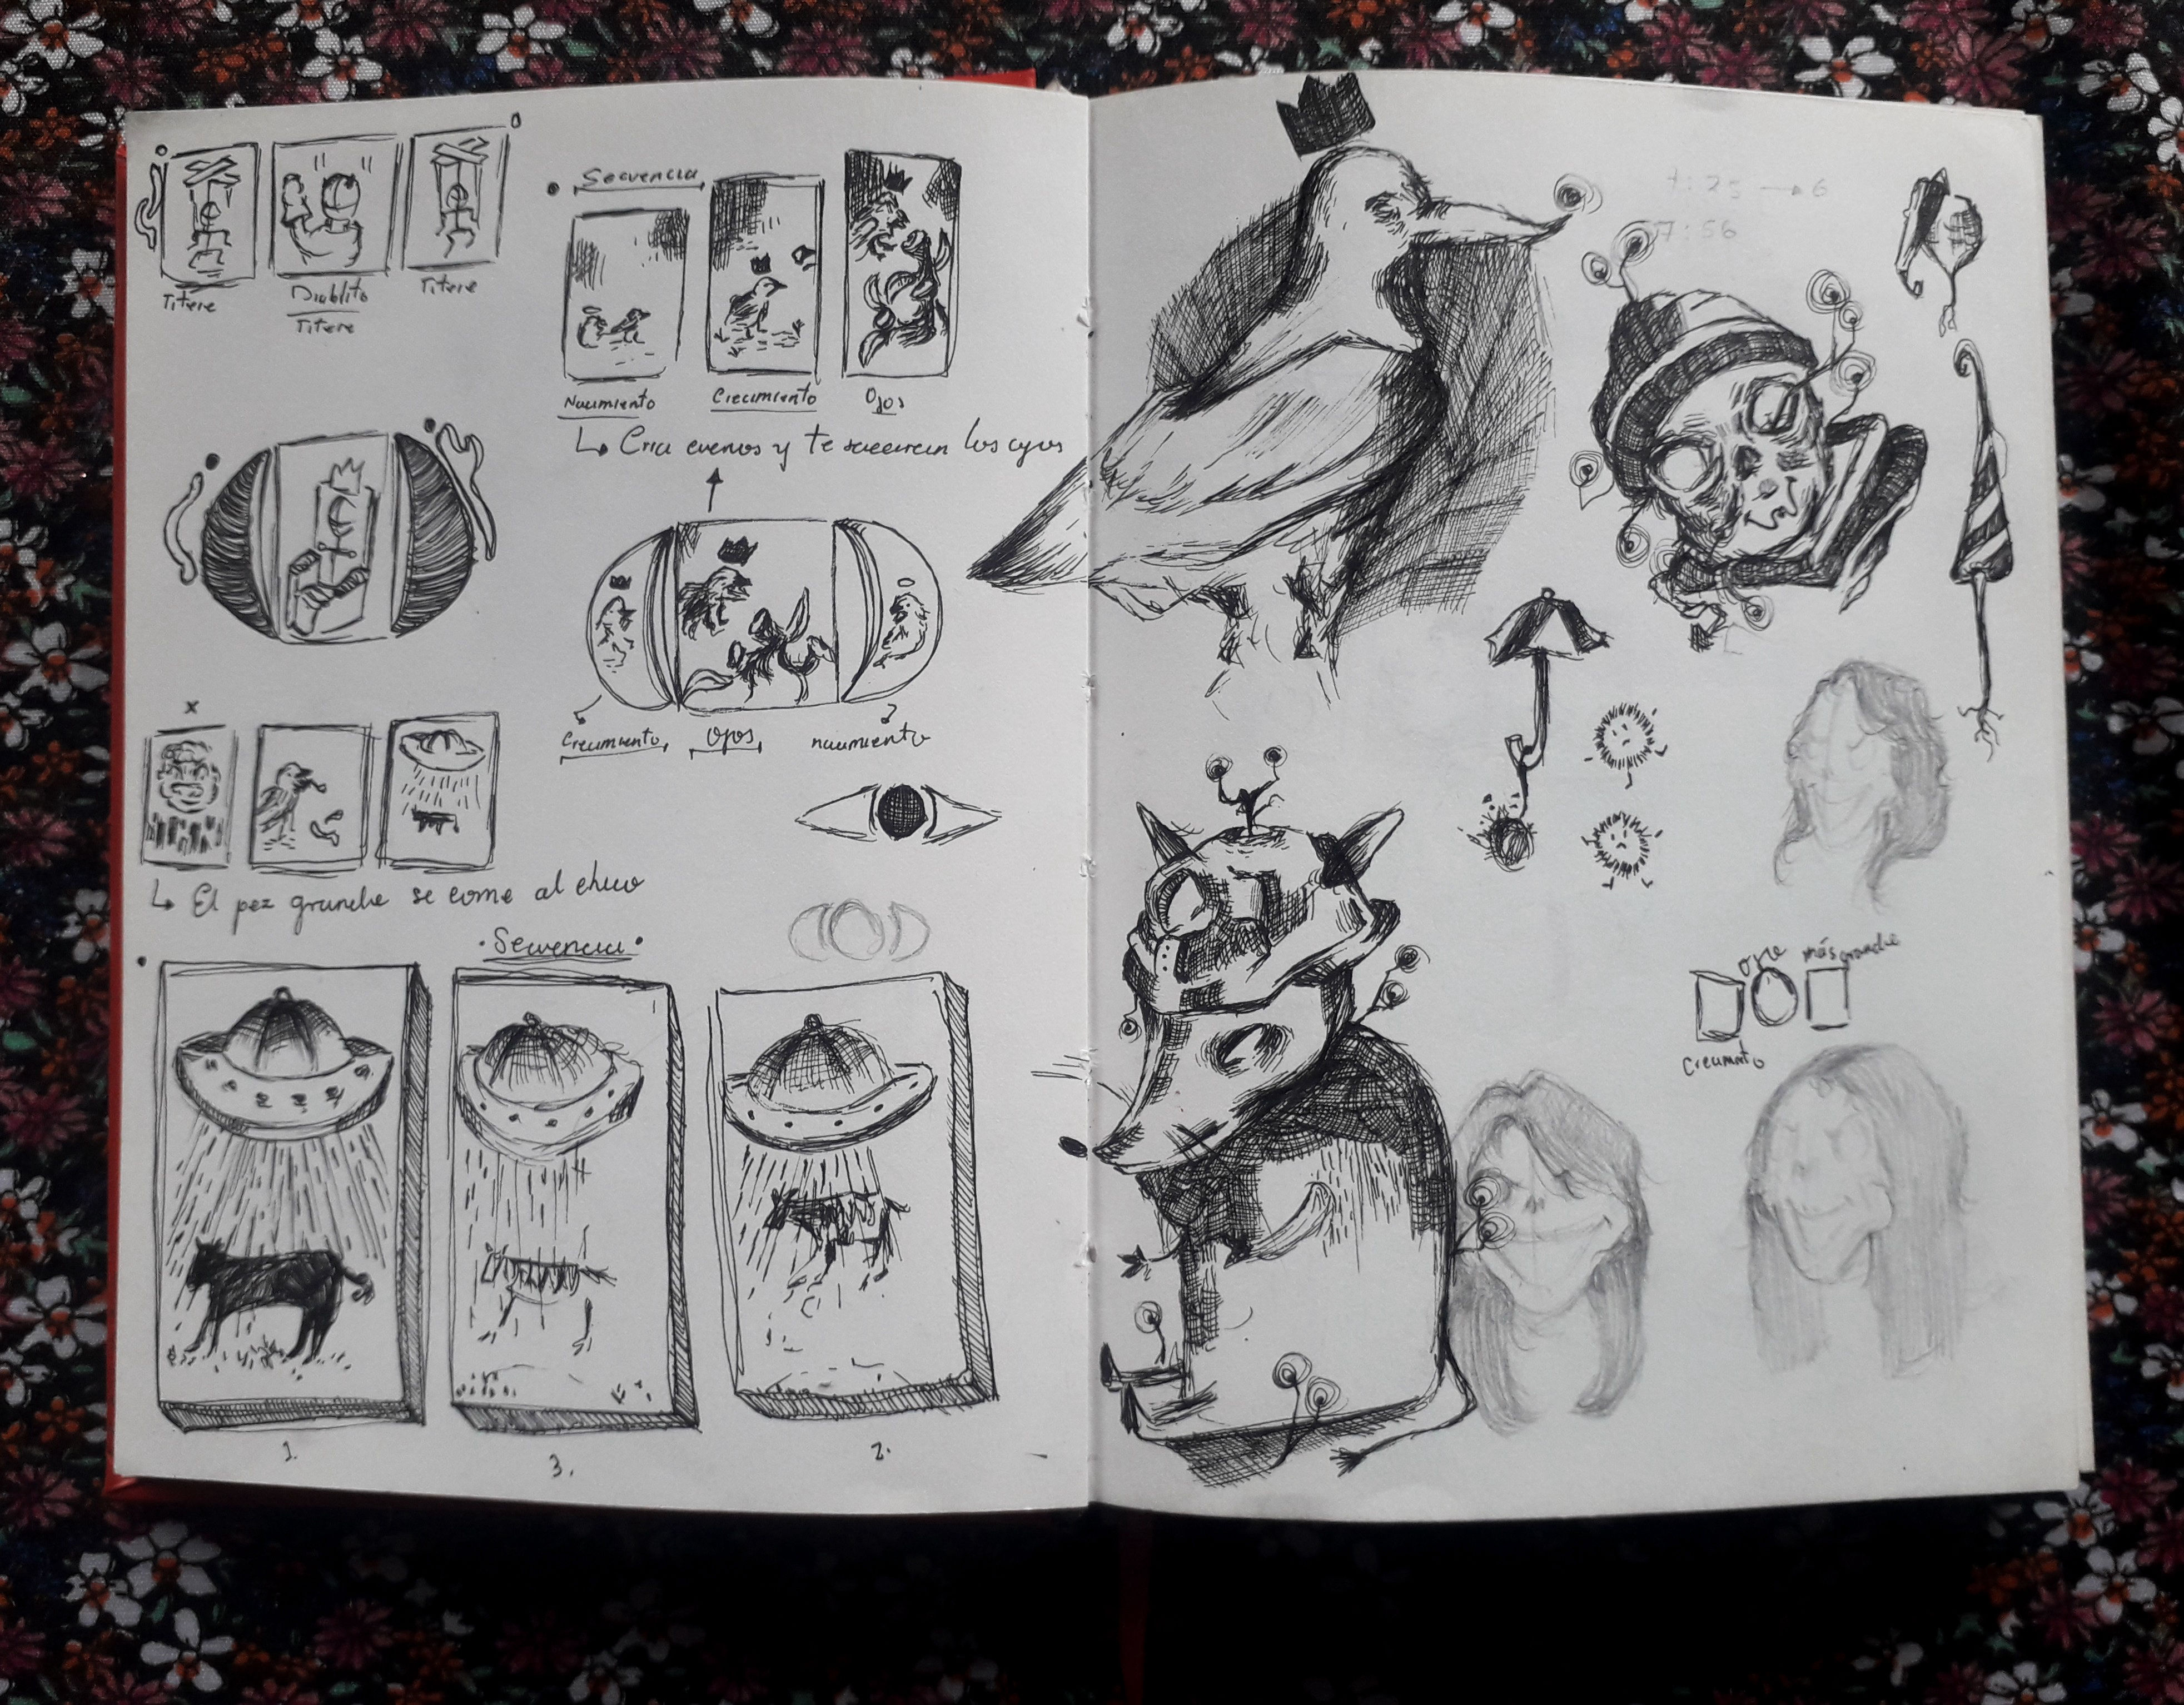 Titere
Diablito
Titere
Titere
Secuencia
Nacimiento
Crecimiento
Ojos
Cria cuervos y te sacaran los ojos
Crecimiento,
Ojos,
nacimiento
x
El pez grande se come al chico
Secuencia
1.
3.
2.
7:56
más grande
Crecimnto